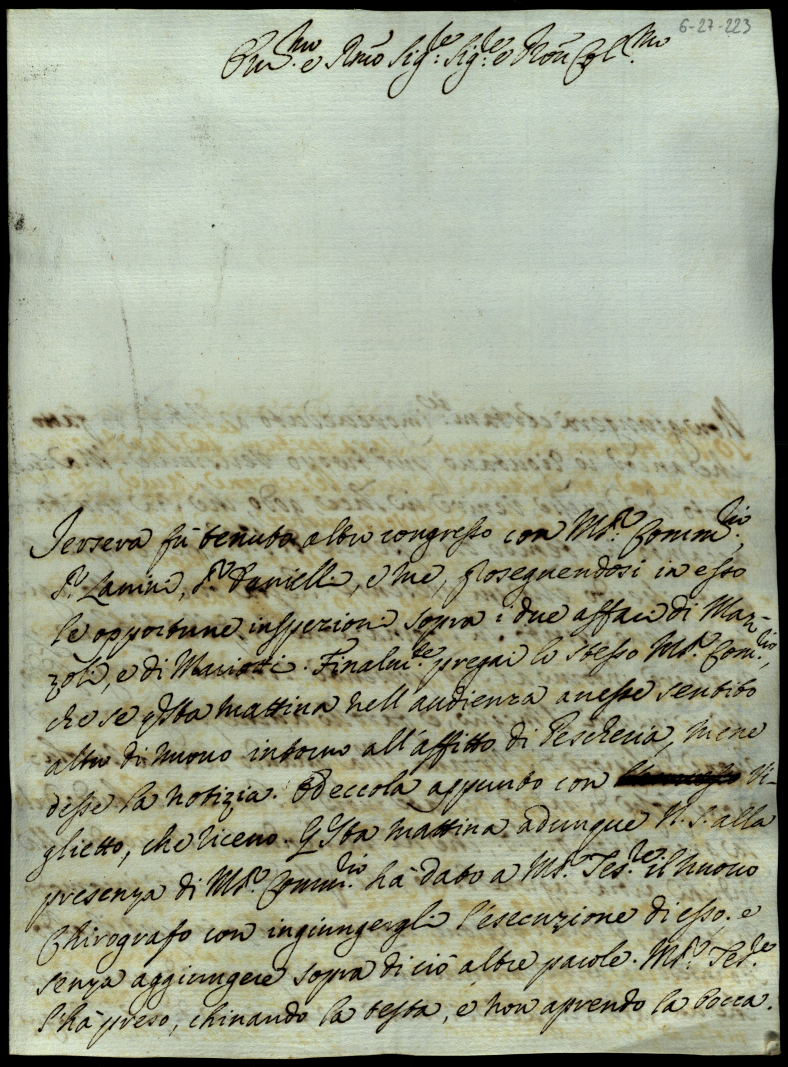 6-27-223
Em.mo e Rmo Sig.re Sig.re e Pron Col.mo
Jersera fù tenuto altro congresso con Mõs.r Comm.rio,
S.r Lanini, S.r Danielli, e me, proseguendosi in esso
le opportune inspezioni sopra i due affari di Mar-
zoli, e di Mariotti. Finalm.te pregai lo stesso Mõs.r Com.rio,
che se q̃sta mattina nell'audienza avesse sentito
altro di nuovo intorno all'affitto di Pescheria, mene
desse la notizia. Ed eccola appunto con Vi-
glietto, che ricevo. Q̃sta mattina adunque N. S. alla
presenza di Mõs.r Comm.rio hà dato a Mõs.r Tes.re il nuovo
Chirografo con ingiungergli l'esecuzione di esso. e
senza aggiungere sopra di ciò altre parole. Mõs.r Tes.re
l'hà preso, chinando la testa, e non aprendo la bocca.